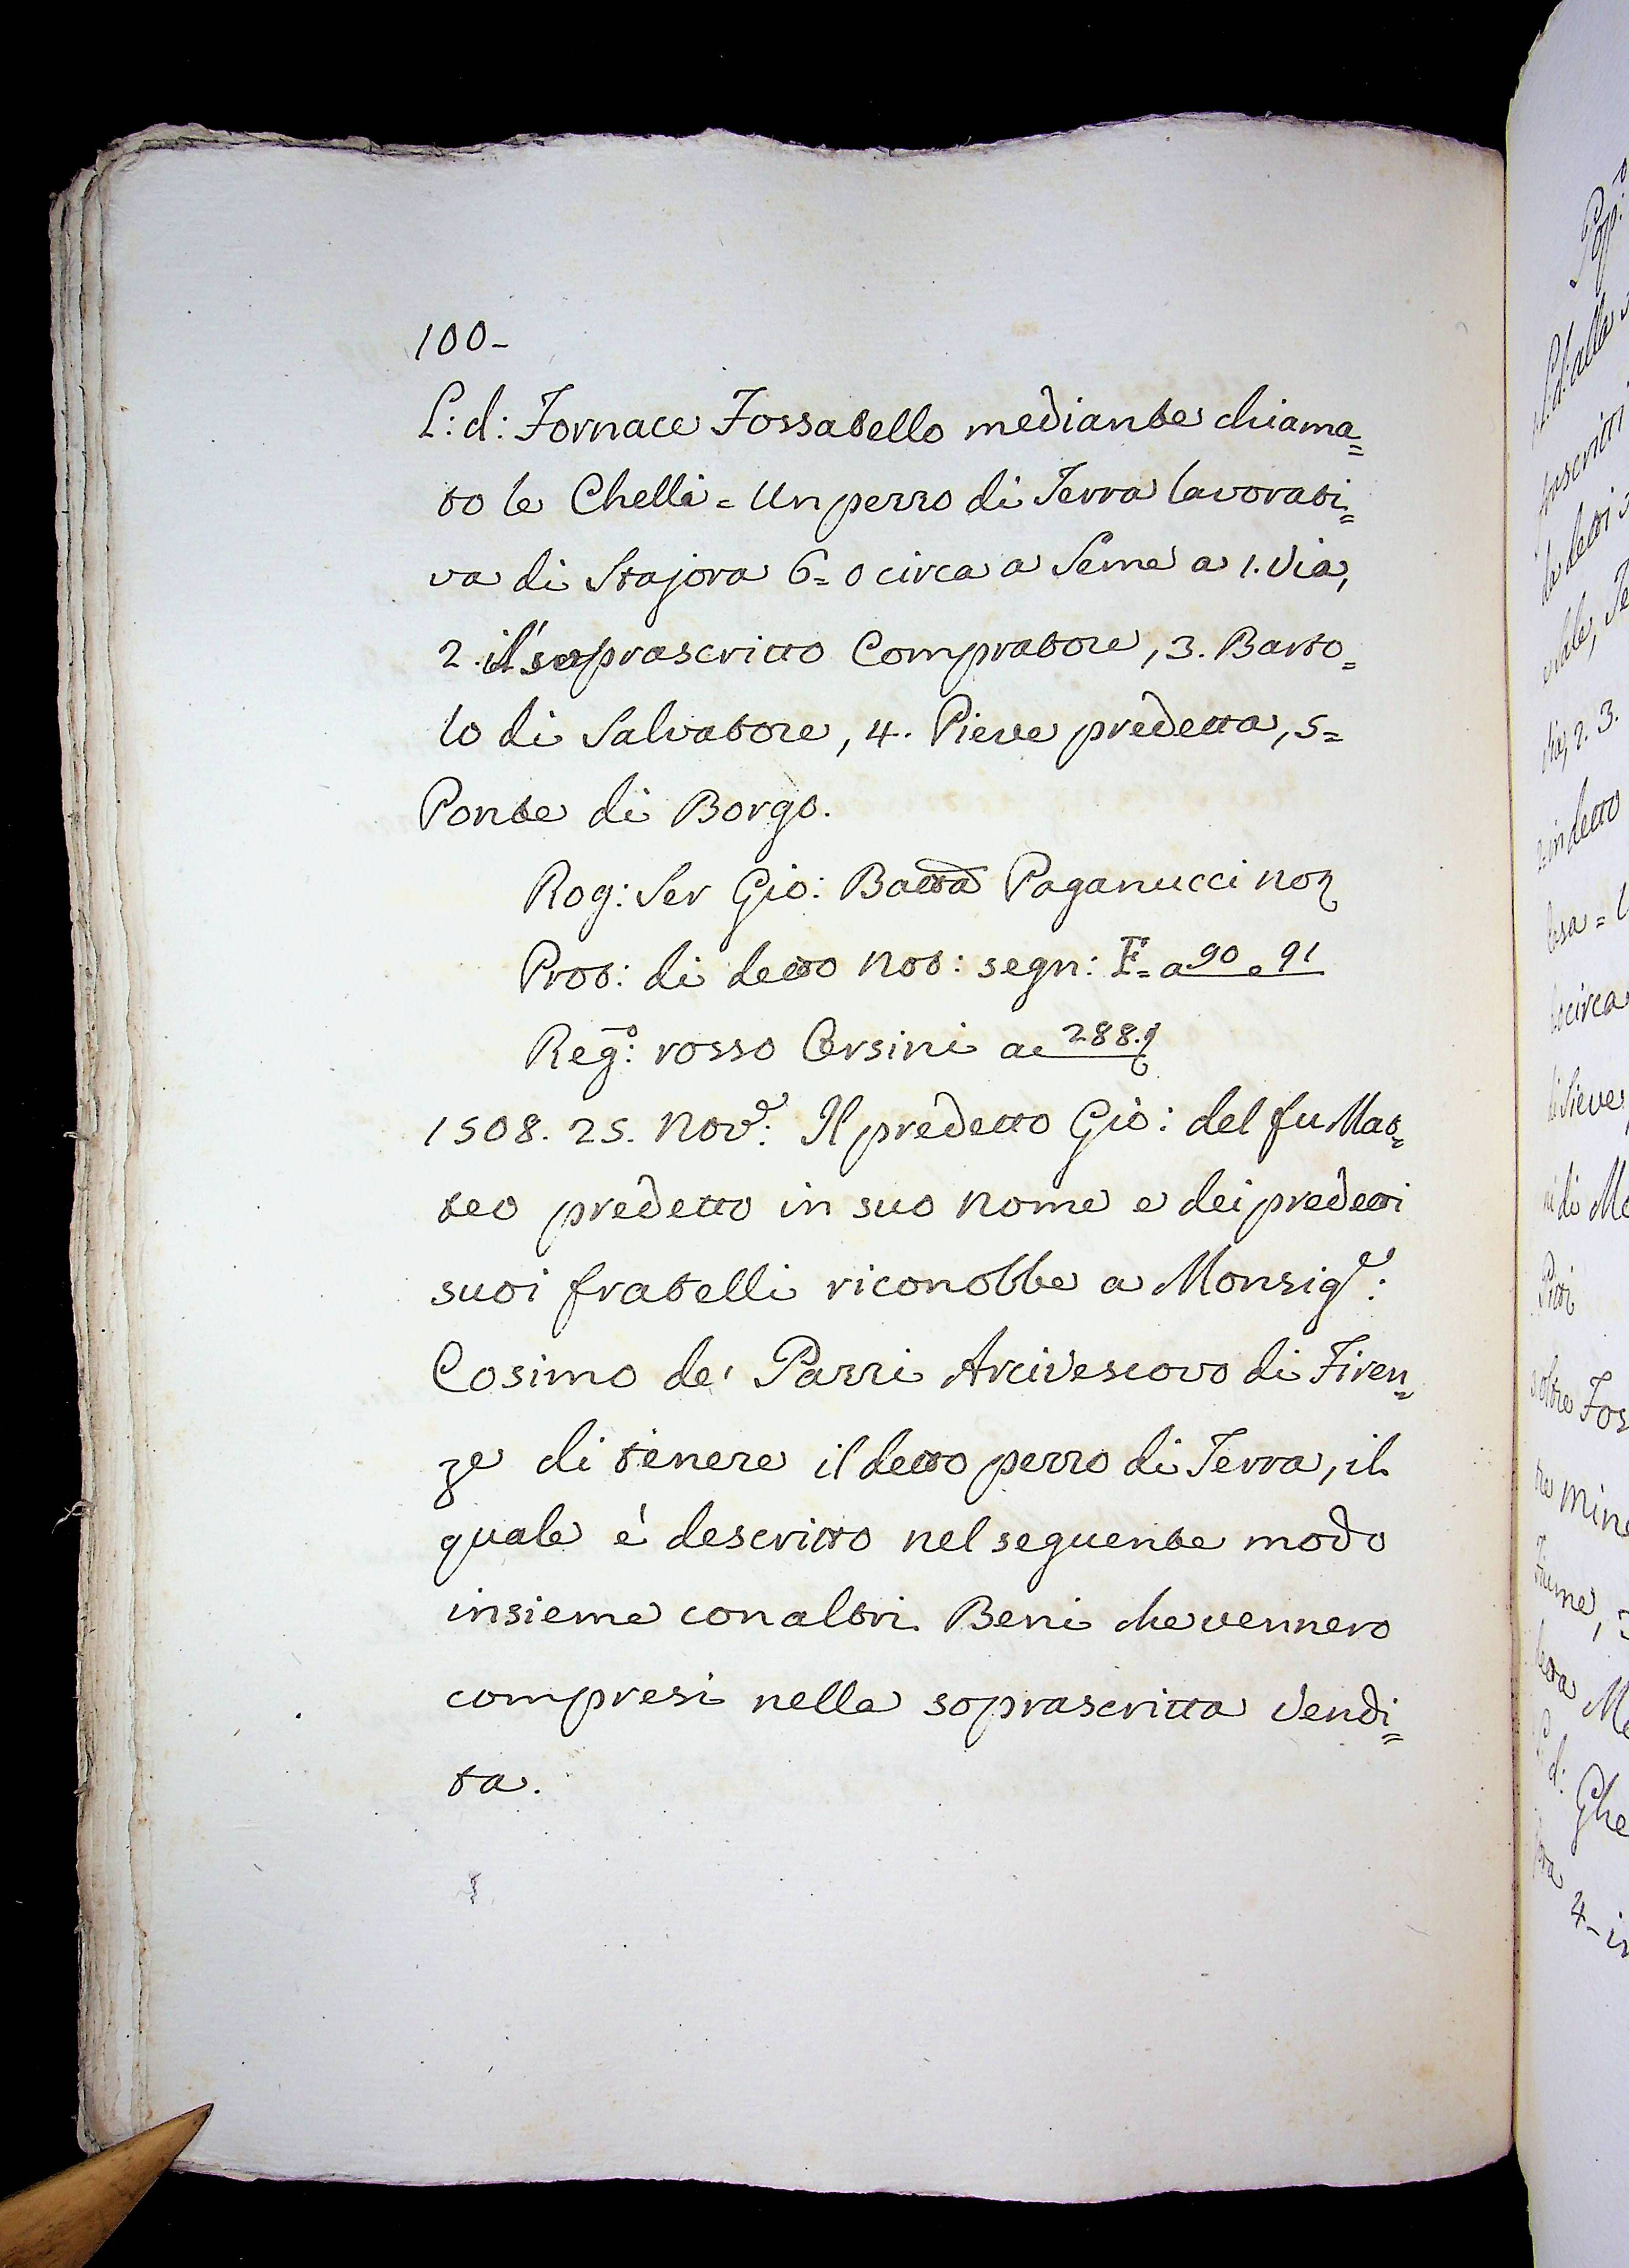 100-
L: d: Fornace Fossatello mediante chiama=
to le Chelli = Un pezzo di Terra lavorati=
va di Stajora 6= o circa a Seme a 1. Via,
2. il soprascritto Compratore, 3. Barto=
lo di Salvatore, 4. Pieve predetta, 5=
Ponte di Borgo.
Rog: Ser Gio: Batta Paganucci
Prot: di detto Not: segn: F= a 90 e 91
Reg:o rosso Orsini a 288.
1508. 25. Nov.e: Il predetto Gio: del fu Mat=
teo predetto in suo nome e dei predetti
suoi fratelli riconobbe a Monsig.e:
Cosimo de' Pazzi Arcivescovo di Firen=
ze di tenere il detto pezzo di Terra, il
quale é descritto nel seguente modo
insieme con altri Beni che vennero
compresi nella soprascritta Vendi=
ta.